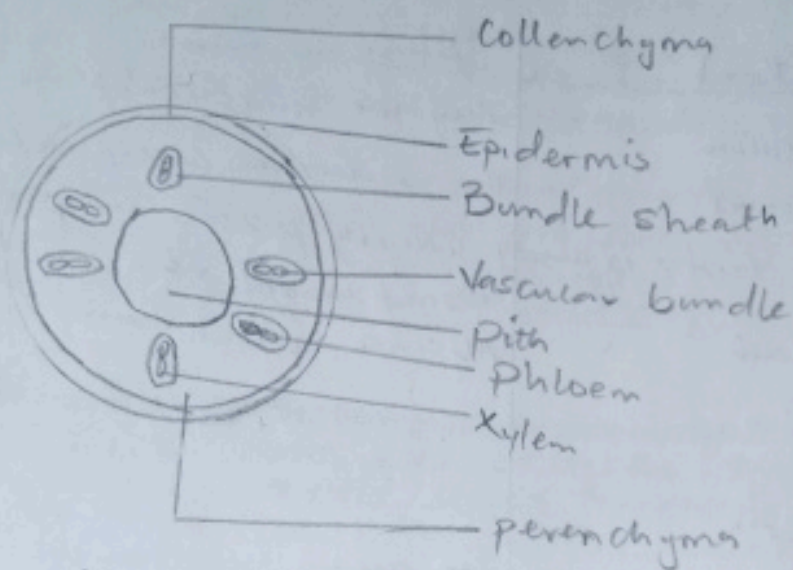 Collenchyma
Epidermis
Bundle sheath
Vascular bundle
Pith
Phloem
Xylem
perenchyma